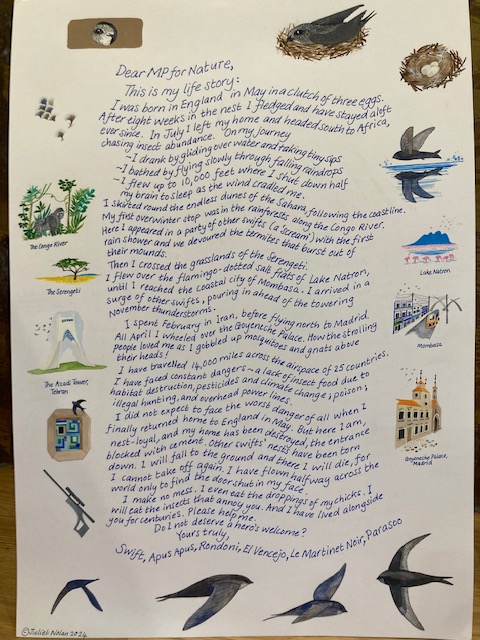 Dear MP for Nature,
This is my life story:
I was born in England in May in a clutch of three eggs.
After eight weeks in the nest I fledged and have stayed aloft
ever since. In July I left my home and headed south to Africa,
chasing insect abundance. On my journey
~I drank by gliding over water and taking tiny sips
~I bathed by flying slowly through falling raindrops
~I flew up to 10,000 feet where I shut down half
my brain to sleep as the wind cradled me.
I skirted round the endless dunes of the Sahara, following the coastline.
My first overwinter stop was in the rainforests along the Congo River.
Here I appeared in a party of other swifts ('a Scream') with the first
rain shower and we devoured the termites that burst out of
their mounds.
Then I crossed the grasslands of the Serengeti.
I flew over the flamingo-dotted salt flats of Lake Natron,
until I reached the coastal city of Mombasa. I arrived in a
surge of other swifts, pouring in ahead of the towering
November thunderstorms.
I spent February in Iran, before flying north to Madrid.
All April I wheeled over the Goyeneche Palace. How the strolling
people loved me as I gobbled up mosquitoes and gnats above
their heads!
I have travelled 14,000 miles across the airspace of 25 countries.
I have faced constant dangers ~ a lack of insect food due to
habitat destruction, pesticides and climate change; poison;
illegal hunting, and overhead power lines.
I did not expect to face the worst danger of all when I
finally returned home to England in May. But here I am,
nest-loyal, and my home has been destroyed, the entrance
blocked with cement. Other swifts' nests have been torn
down. I will fall to the ground and there I will die, for
I cannot take off again. I have flown halfway across the
world only to find the door shut in my face.
I make no mess. I even eat the droppings of my chicks. I
will eat the insects that annoy you. And I have lived alongside
you for centuries. Please help me.
Do I not deserve a hero's welcome?
Yours truly,
Swift, Apus Apus, Rondoni, El Vencejo, Le Martinet Noir, Parasoo
The Congo River
The Serengeti
The Azadi Tower,
Tehran
Lake Natron
Mombasa
Goyeneche Palace,
Madrid
©Juliet Nolan 2024